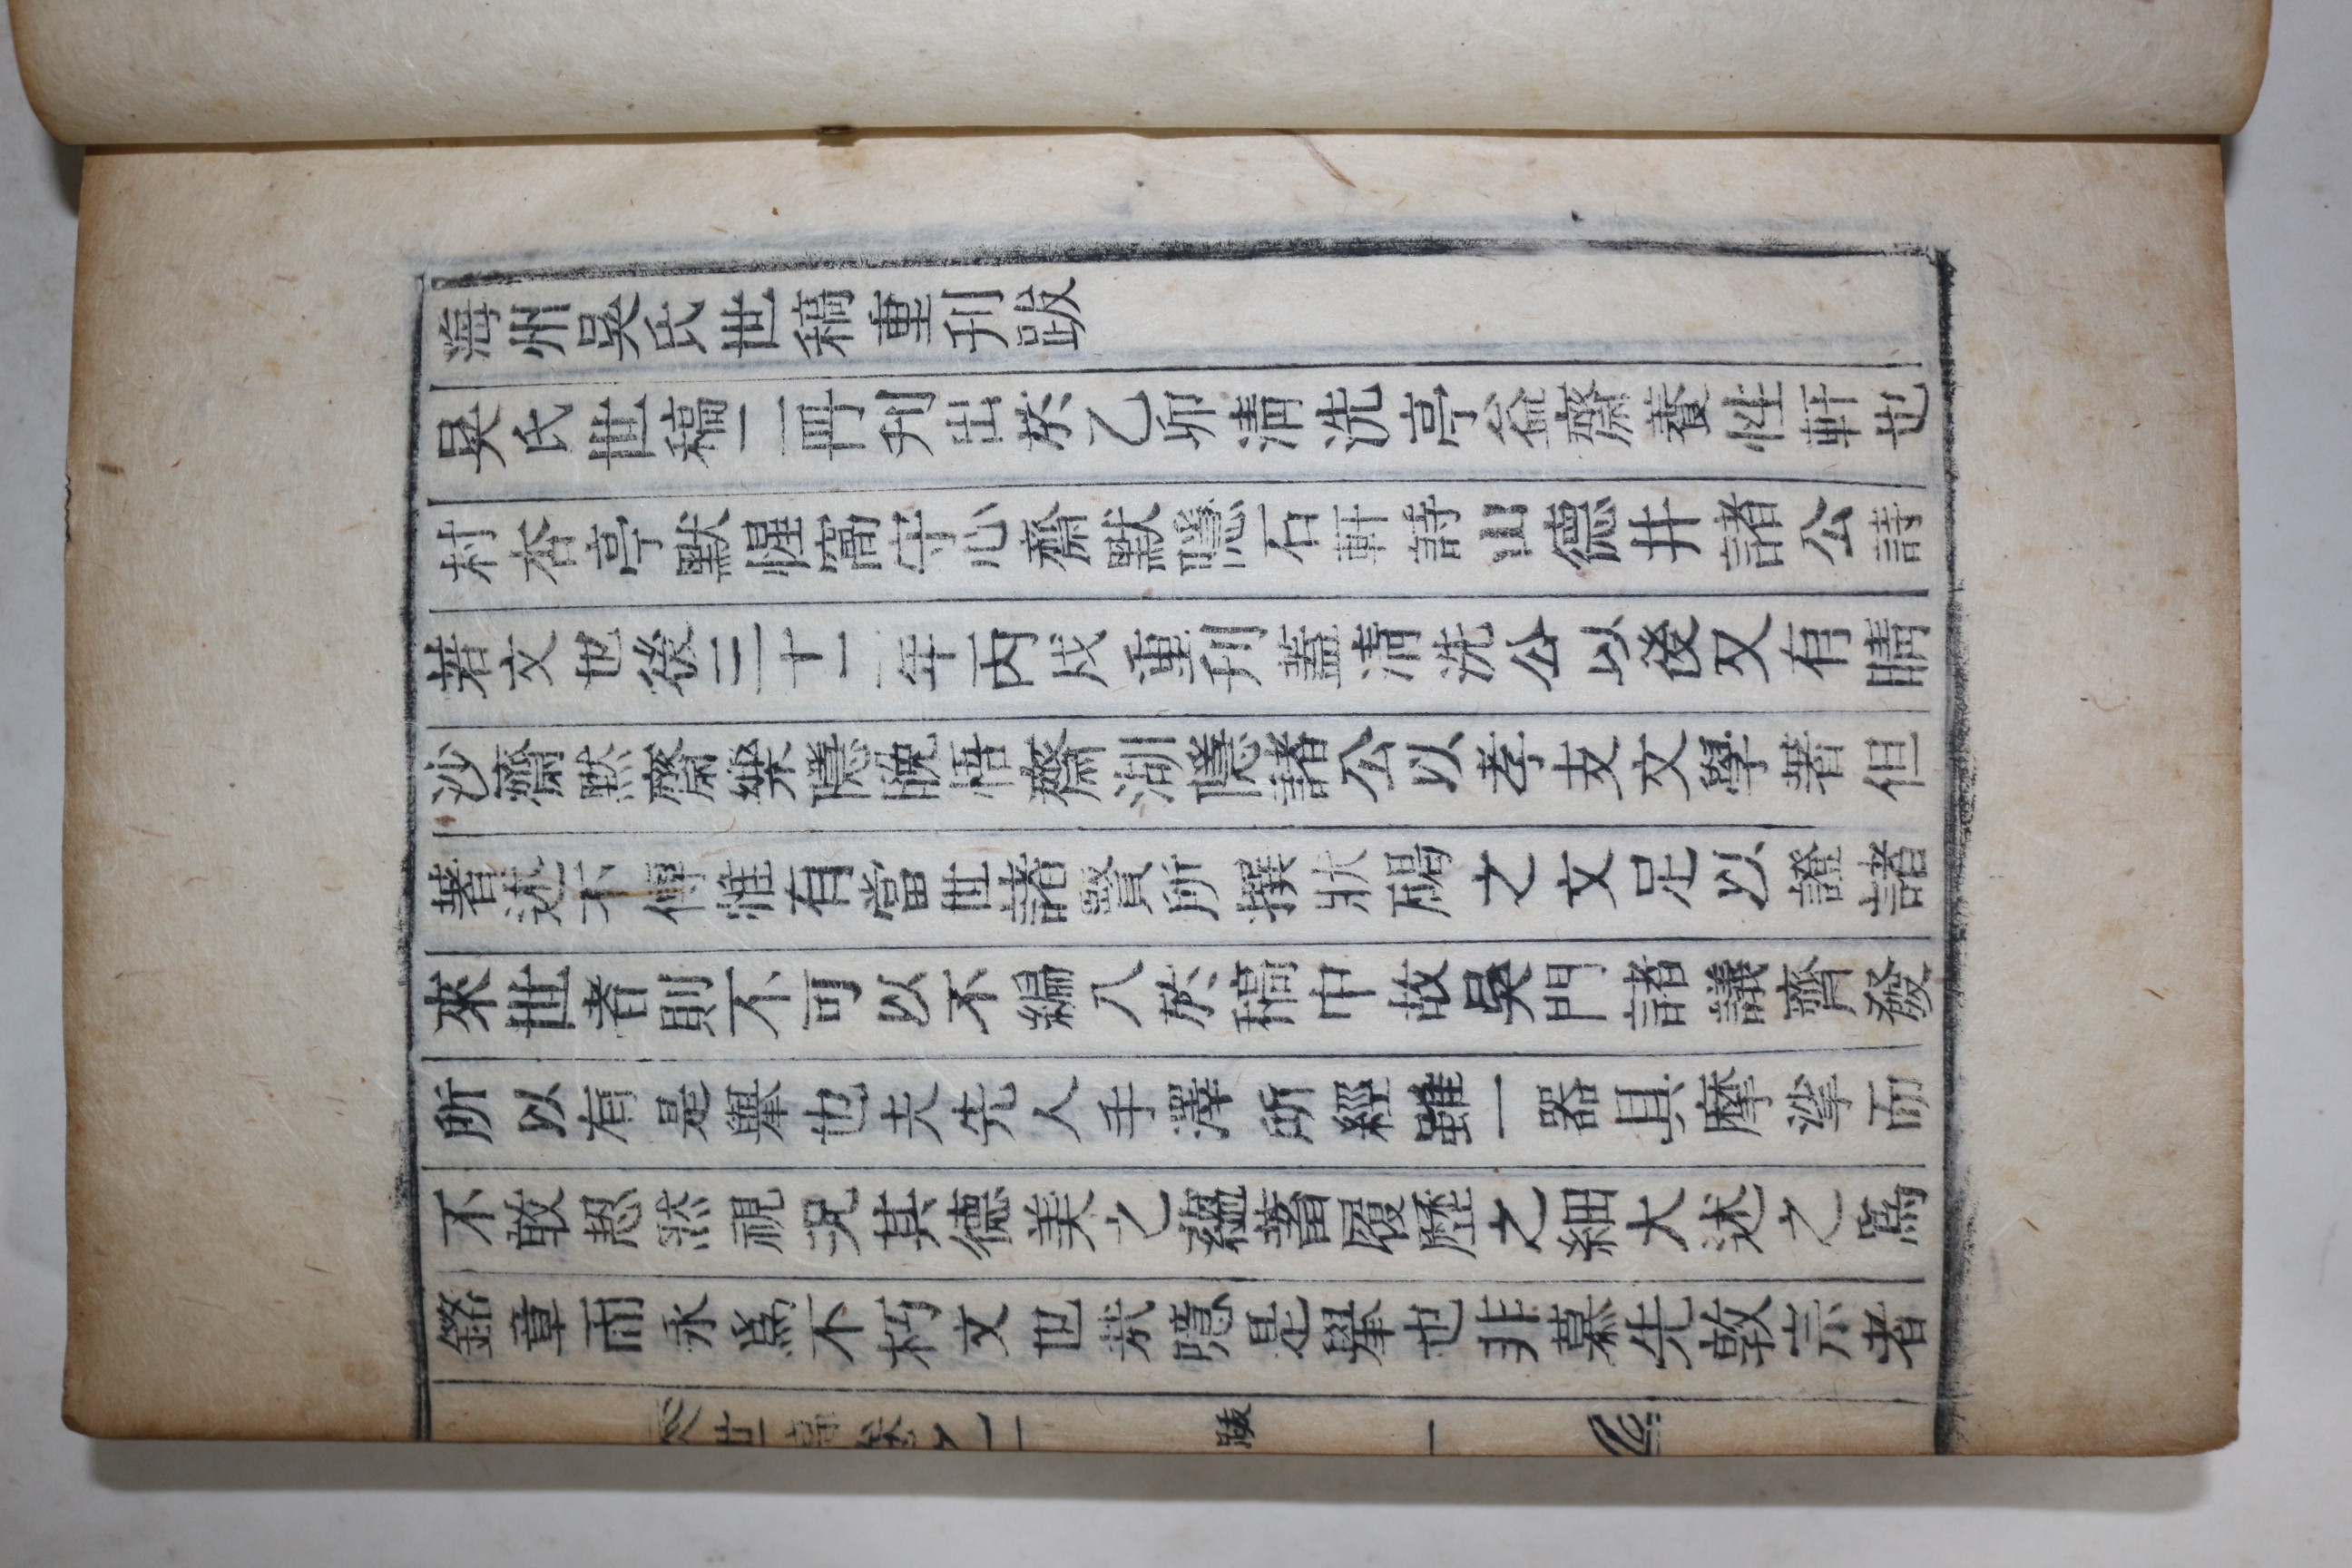 海州吳氏世稿重刊跋
吳氏世稿二冊刊出於乙卯淸洗亭益齋養性軒也
村杏亭默惺窩守心齋默隱石軒詩山德井諸公詩
若文也後三十二年丙戌重刊蓋淸洗公以後又有晴
沙齋默齋樂隱晚悟齋湖隱諸公以孝友文學著但
著述不傳惟有當世諸賢所撰狀碣之文足以證諸
來世者則不可以不編入於稿中故吳門諸議齊發
所以有是擧也夫先人手澤所經雖一器具摩挲而
不敢恝然視況其德美之蘊蓄履歷之細大述之爲
銘章而永爲不朽文也哉噫是擧也非慕先敦宗者
世稿卷 跋 一